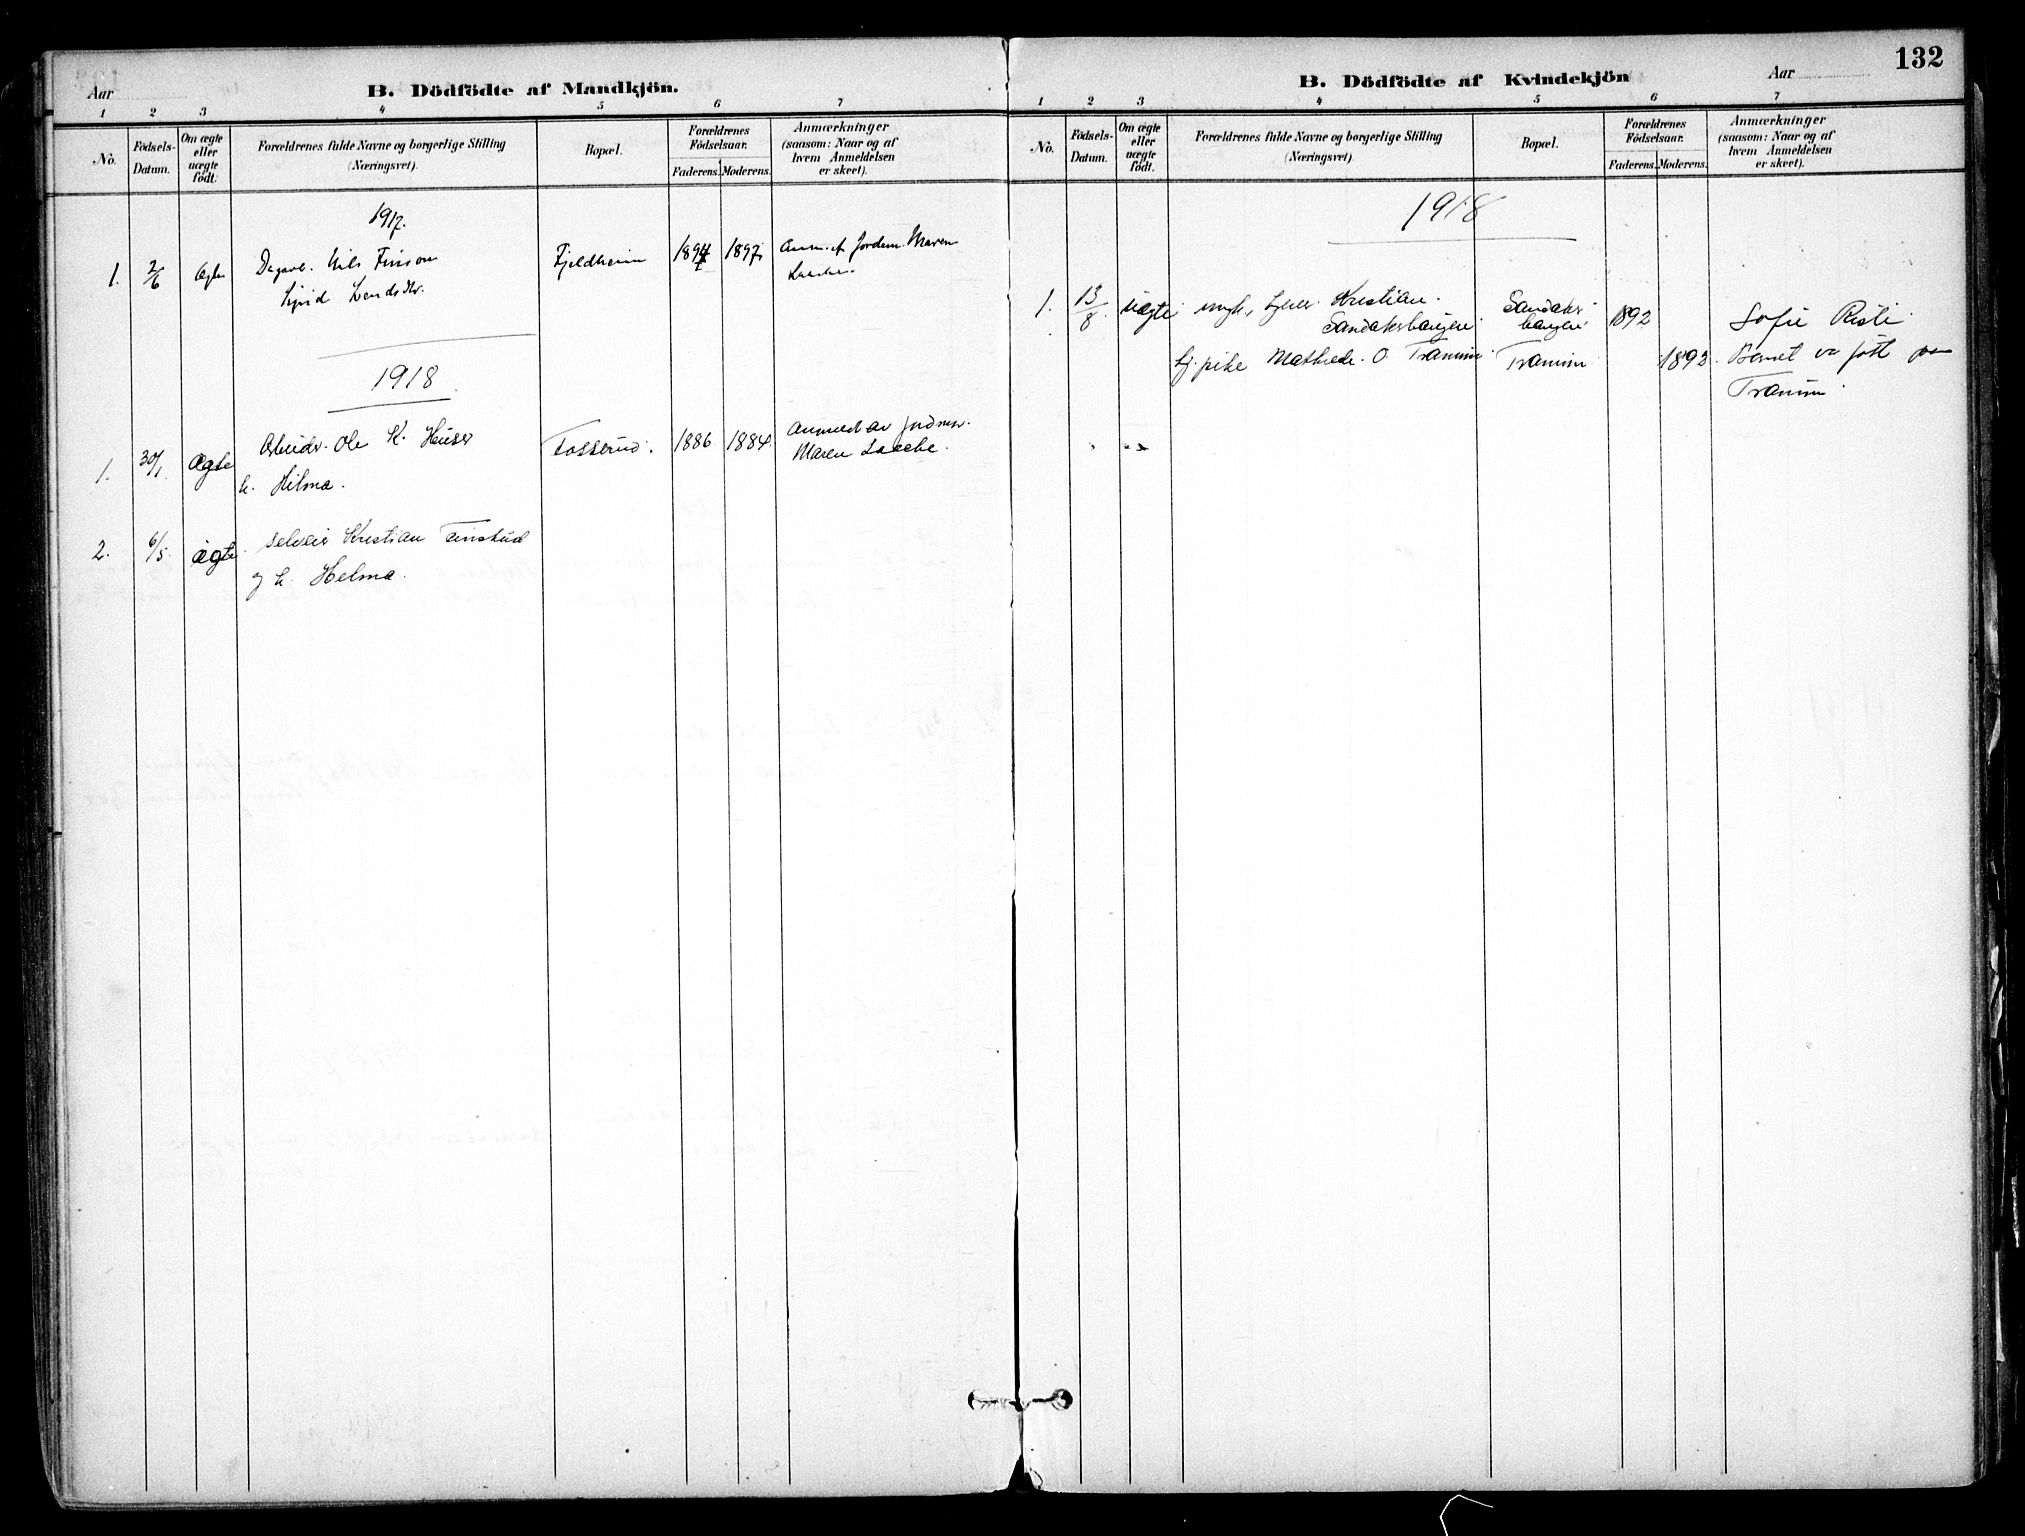 132
Aar
B. Dödfödte af Mandkjön.
1 2 3 4 5 6 7
No.
Födsels-Datum.
Om ægte eller uægte födt.
Forældrenes fulde Navne og borgerlige Stilling (Næringsvei).
Bopæl.
Forældrenes Födselsaar.
Faderens. Moderens.
Anmærkninger (saasom: Naar og af hvem Anmeldelsen er skeet).
1917.
1. 2/6 Ægte Dagarb. Nils Finson Fjeldheim 1894 1897 Anm. af Jordem. Maren
Sigrid
1918
1. 30/1 Ægte Arbeider Ole K. Huser Fosserud. 1886 1884 Anmeldt av Jordmor
h. Hilma. Maren
2. 6/5. Ægte Selveier Kristian
og h. Helma.
B. Dödfödte af Kvindekjön
Aar
1 2 3 4 5 6 7
No.
Födsels-Datum.
Om ægte eller uægte födt.
Forældrenes fulde Navne og borgerlige Stilling (Næringsvei).
Bopæl.
Forældrenes Födselsaar.
Faderens. Moderens.
Anmærkninger (saasom: Naar og af hvem Anmeldelsen er skeet).
1918
1. 13/8 uægte ungk. Kristian Sandaker 1892 Sofie
Sandakerhaugen haugen
pike Mathilde O. 1893. Barnet født paa